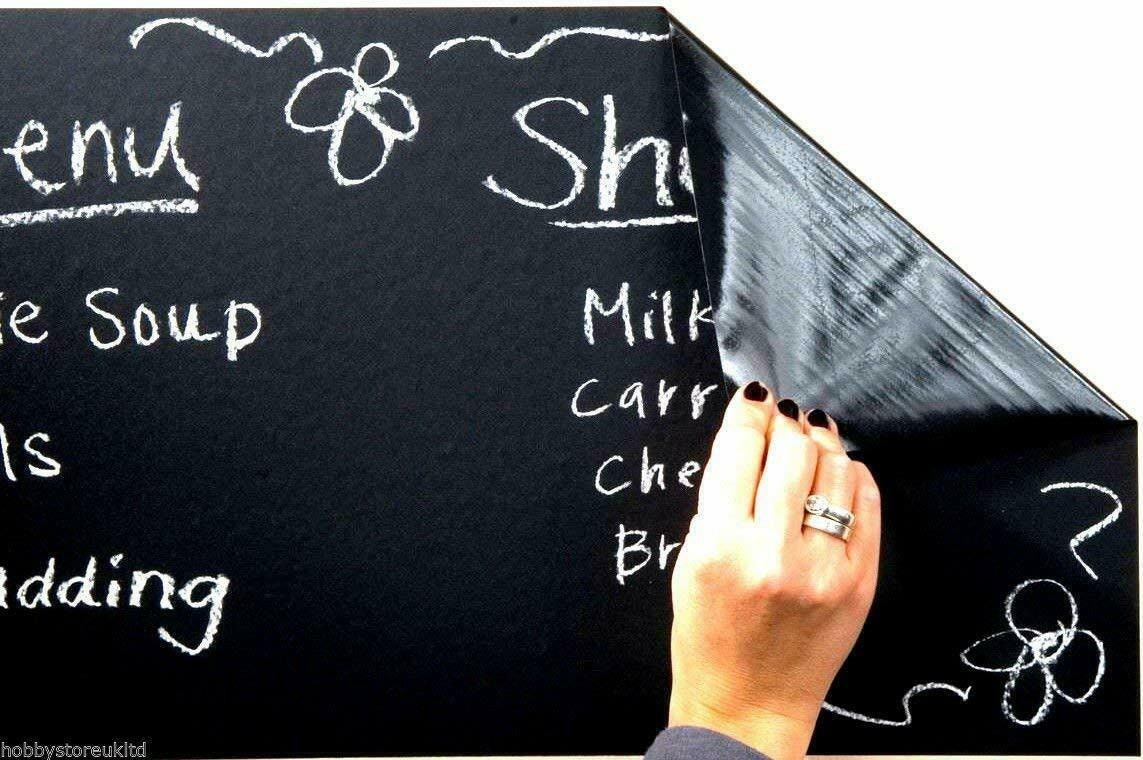 enu
ie Soup
ls
udding
Sh
Milk
Carr
Che
Br
hobbystoreukltd